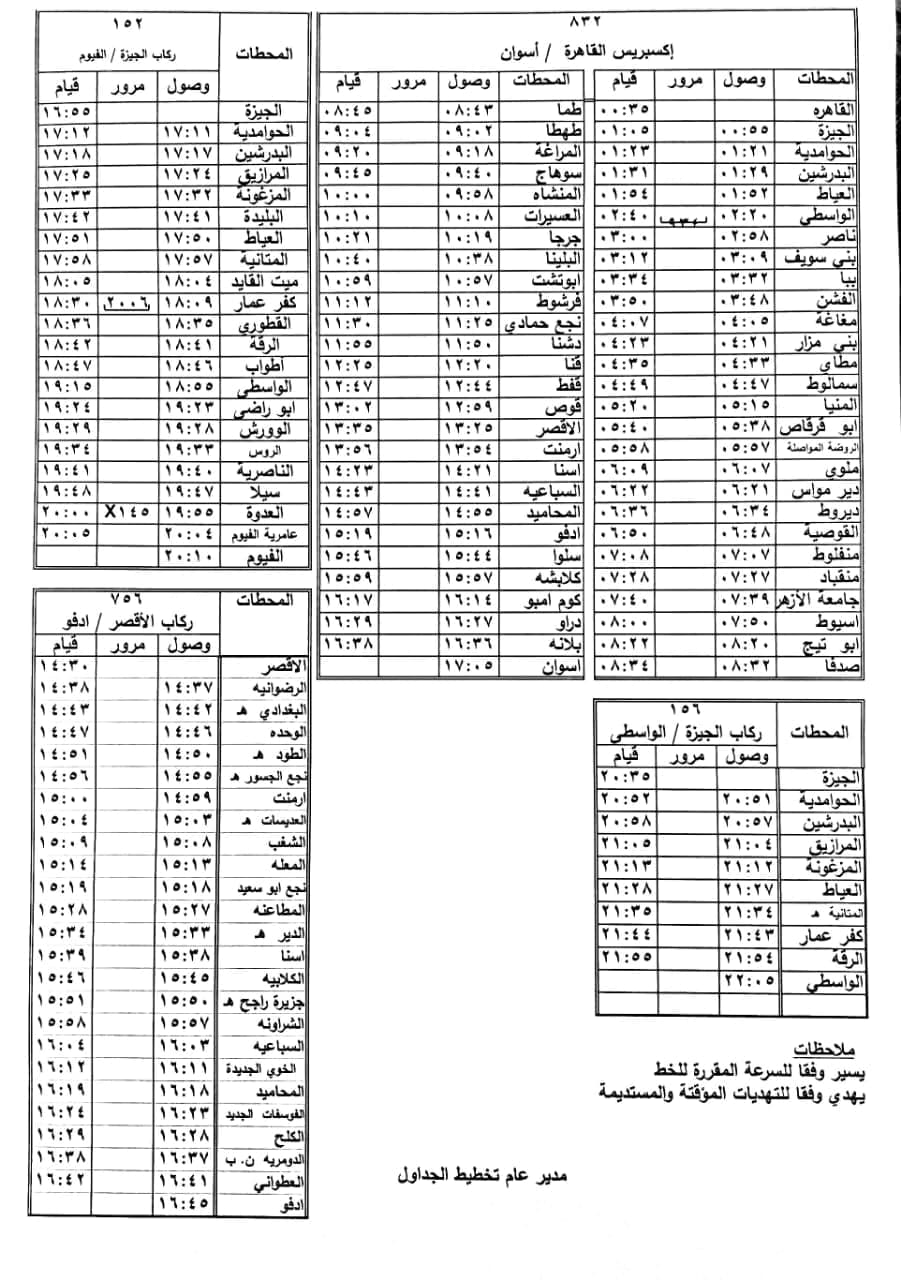 ٨٣٢
إكسبريس القاهرة / أسوان
المحطات وصول مرور قيام
القاهره ٠٠:٣٥
الجيزة ٠٠:٥٥ ٠١:٠٥
الحوامدية ٠١:٢١ ٠١:٢٣
البدرشين ٠١:٢٩ ٠١:٣١
العياط ٠١:٥٢ ٠١:٥٤
الواسطي ٠٢:٢٠ ٠٢:٤٠
ناصر ٠٢:٥٨ ٠٣:٠٠
بني سويف ٠٣:٠٩ ٠٣:١٢
ببا ٠٣:٣٢ ٠٣:٣٤
الفشن ٠٣:٤٨ ٠٣:٥٠
مغاغة ٠٤:٠٥ ٠٤:٠٧
بني مزار ٠٤:٢١ ٠٤:٢٣
مطاي ٠٤:٣٣ ٠٤:٣٥
سمالوط ٠٤:٤٧ ٠٤:٤٩
المنيا ٠٥:١٥ ٠٥:٢٠
ابو قرقاص ٠٥:٣٨ ٠٥:٤٠
الروضة المواصلة ٠٥:٥٧ ٠٥:٥٨
ملوي ٠٦:٠٧ ٠٦:٠٩
دير مواس ٠٦:٢١ ٠٦:٢٢
ديروط ٠٦:٣٤ ٠٦:٣٦
القوصية ٠٦:٤٨ ٠٦:٥٠
منفلوط ٠٧:٠٧ ٠٧:٠٨
منقباد ٠٧:٢٧ ٠٧:٢٨
جامعة الأزهر ٠٧:٣٩ ٠٧:٤٠
اسيوط ٠٧:٥٠ ٠٨:٠٠
ابو تيج ٠٨:٢٠ ٠٨:٢٢
صدفا ٠٨:٣٢ ٠٨:٣٤
المحطات وصول مرور قيام
طما ٠٨:٤٣ ٠٨:٤٥
طهطا ٠٩:٠٢ ٠٩:٠٤
المراغة ٠٩:١٨ ٠٩:٢٠
سوهاج ٠٩:٤٠ ٠٩:٤٥
المنشاه ٠٩:٥٨ ١٠:٠٠
العسيرات ١٠:٠٨ ١٠:١٠
جرجا ١٠:١٩ ١٠:٢١
البلينا ١٠:٣٨ ١٠:٤٠
ابوتشت ١٠:٥٧ ١٠:٥٩
فرشوط ١١:١٠ ١١:١٢
نجع حمادي ١١:٢٥ ١١:٣٠
دشنا ١١:٥٠ ١١:٥٥
قنا ١٢:٢٠ ١٢:٢٥
قفط ١٢:٤٤ ١٢:٤٧
قوص ١٢:٥٩ ١٣:٠٢
الاقصر ١٣:٢٥ ١٣:٣٥
ارمنت ١٣:٥٤ ١٣:٥٦
اسنا ١٤:٢١ ١٤:٢٣
السباعيه ١٤:٤١ ١٤:٤٣
المحاميد ١٤:٥٥ ١٤:٥٧
ادفو ١٥:١٦ ١٥:١٩
سلوا ١٥:٤٤ ١٥:٤٦
كلابشه ١٥:٥٧ ١٥:٥٩
كوم امبو ١٦:١٤ ١٦:١٧
دراو ١٦:٢٧ ١٦:٢٩
بلانه ١٦:٣٦ ١٦:٣٨
اسوان ١٧:٠٥
المحطات
١٥٢
ركاب الجيزة / الفيوم
وصول مرور قيام
الجيزة ١٦:٥٥
الحوامدية ١٧:١١ ١٧:١٢
البدرشين ١٧:١٧ ١٧:١٨
المرازيق ١٧:٢٤ ١٧:٢٥
المزغونة ١٧:٣٢ ١٧:٣٣
البليدة ١٧:٤١ ١٧:٤٢
العياط ١٧:٥٠ ١٧:٥١
المتانية ١٧:٥٧ ١٧:٥٨
ميت القايد ١٨:٠٤ ١٨:٠٥
كفر عمار ١٨:٠٩ ٢٠٠٦ ١٨:٣٠
القطوري ١٨:٣٥ ١٨:٣٦
الرقة ١٨:٤١ ١٨:٤٢
أطواب ١٨:٤٦ ١٨:٤٧
الواسطى ١٨:٥٥ ١٩:١٥
ابو راضي ١٩:٢٣ ١٩:٢٤
الوورش ١٩:٢٨ ١٩:٢٩
الروس ١٩:٣٣ ١٩:٣٤
الناصرية ١٩:٤٠ ١٩:٤١
سيلا ١٩:٤٧ ١٩:٤٨
العدوة ١٩:٥٥ X١٤٥ ٢٠:٠٠
عامرية الفيوم ٢٠:٠٤ ٢٠:٠٥
الفيوم ٢٠:١٠
المحطات
٧٥٦
ركاب الأقصر / ادفو
وصول مرور قيام
الاقصر ١٤:٣٠
الرضوانيه ١٤:٣٧ ١٤:٣٨
البغدادي هـ ١٤:٤٢ ١٤:٤٣
الوحده ١٤:٤٦ ١٤:٤٧
الطود هـ ١٤:٥٠ ١٤:٥١
نجع الجسور هـ ١٤:٥٥ ١٤:٥٦
ارمنت ١٤:٥٩ ١٥:٠٠
العديسات هـ ١٥:٠٣ ١٥:٠٤
الشغب ١٥:٠٨ ١٥:٠٩
المعله ١٥:١٣ ١٥:١٤
نجع ابو سعيد ١٥:١٨ ١٥:١٩
المطاعنه ١٥:٢٧ ١٥:٢٨
الدير هـ ١٥:٣٣ ١٥:٣٤
اسنا ١٥:٣٨ ١٥:٣٩
الكلابيه ١٥:٤٥ ١٥:٤٦
جزيرة راجح هـ ١٥:٥٠ ١٥:٥١
الشراونه ١٥:٥٧ ١٥:٥٨
السباعيه ١٦:٠٣ ١٦:٠٤
الخوي الجديدة ١٦:١١ ١٦:١٢
المحاميد ١٦:١٨ ١٦:١٩
الفوسفات الجديد ١٦:٢٣ ١٦:٢٤
الكلح ١٦:٢٨ ١٦:٢٩
الدومريه ن.ب ١٦:٣٧ ١٦:٣٨
العطواني ١٦:٤١ ١٦:٤٢
ادفو ١٦:٤٥
المحطات
١٥٦
ركاب الجيزة / الواسطي
وصول مرور قيام
الجيزة ٢٠:٣٥
الحوامدية ٢٠:٥١ ٢٠:٥٢
البدرشين ٢٠:٥٧ ٢٠:٥٨
المرازيق ٢١:٠٤ ٢١:٠٥
المزغونة ٢١:١٢ ٢١:١٣
العياط ٢١:٢٧ ٢١:٢٨
المتانية هـ ٢١:٣٤ ٢١:٣٥
كفر عمار ٢١:٤٣ ٢١:٤٤
الرقة ٢١:٥٤ ٢١:٥٥
الواسطي ٢٢:٠٥
ملاحظات
يسير وفقا للسرعة المقررة للخط
يهدي وفقا للتهديات المؤقتة والمستديمة
مدير عام تخطيط الجداول